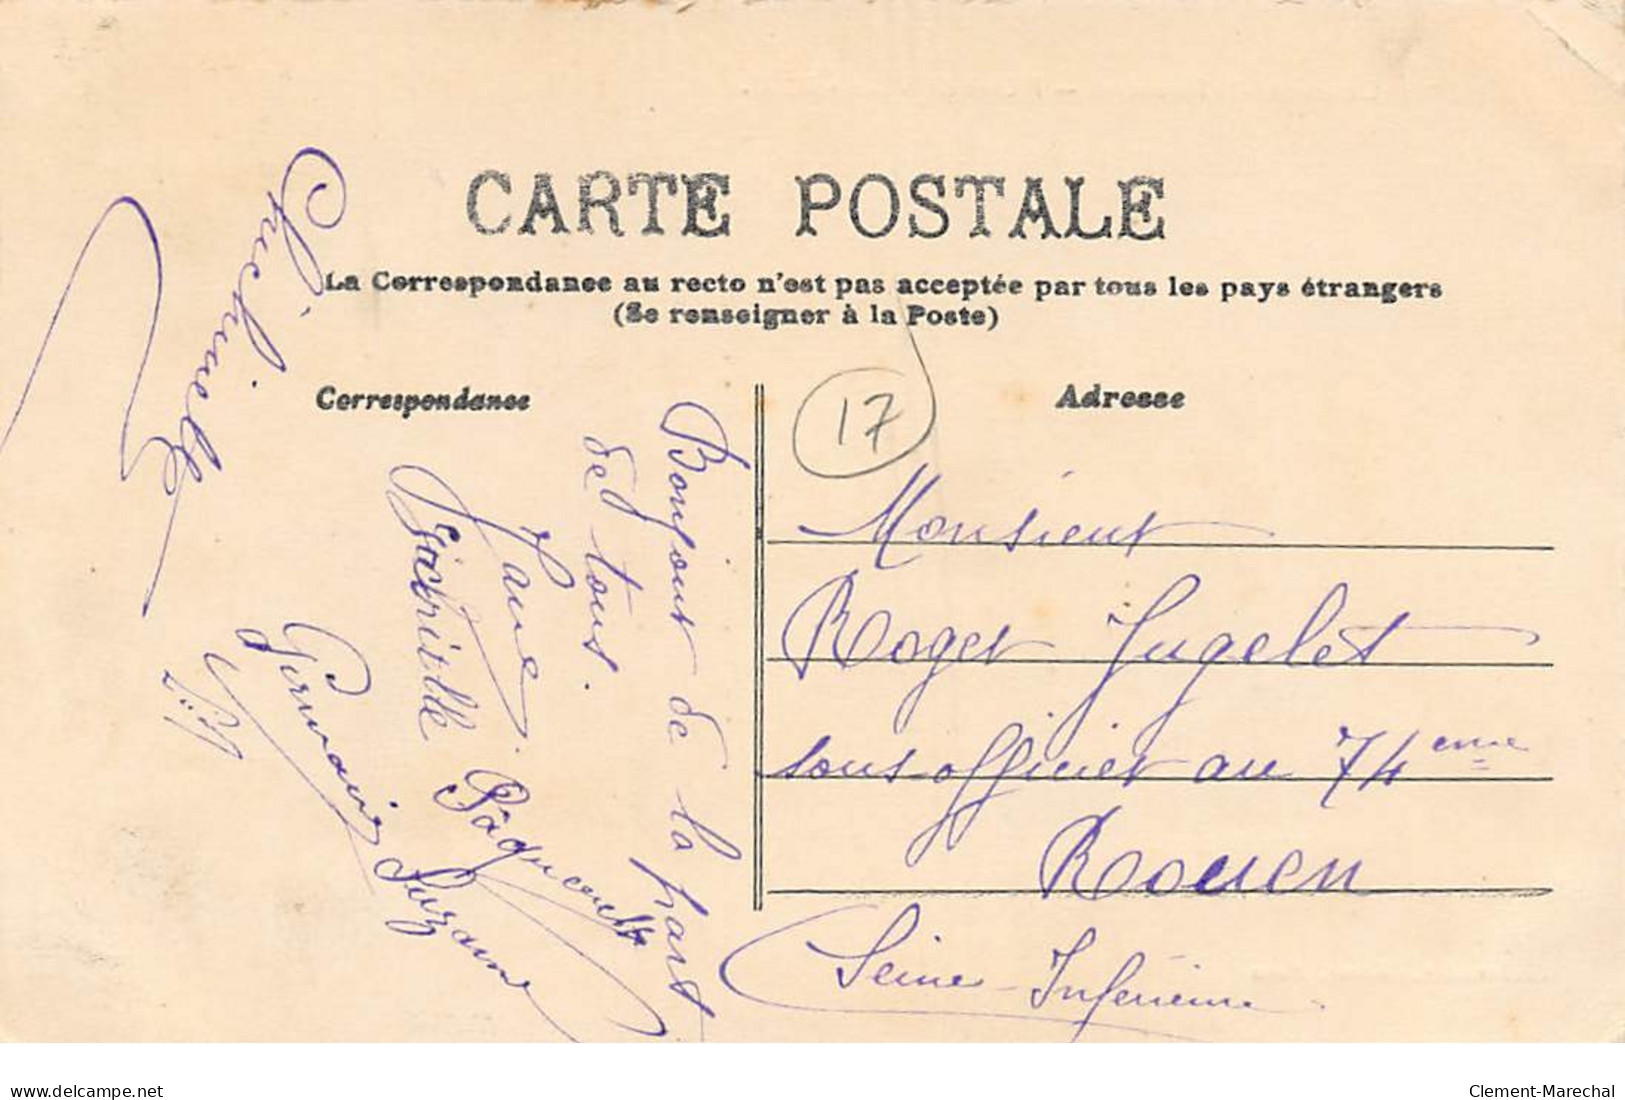 CARTE POSTALE
La Correspondance au recto n'est pas acceptée par tous les pays étrangers
(Se renseigner à la Poste)
Correspondance
Adresse
17
Bonjour de la part
de tous.
Jane
Pâquerette
Germaine Suzanne
Monsieur
Roger Jugelet
sous-officier au 74eme
Rouen
Seine-Inférieure
www.delcampe.net
Clement-Marechal